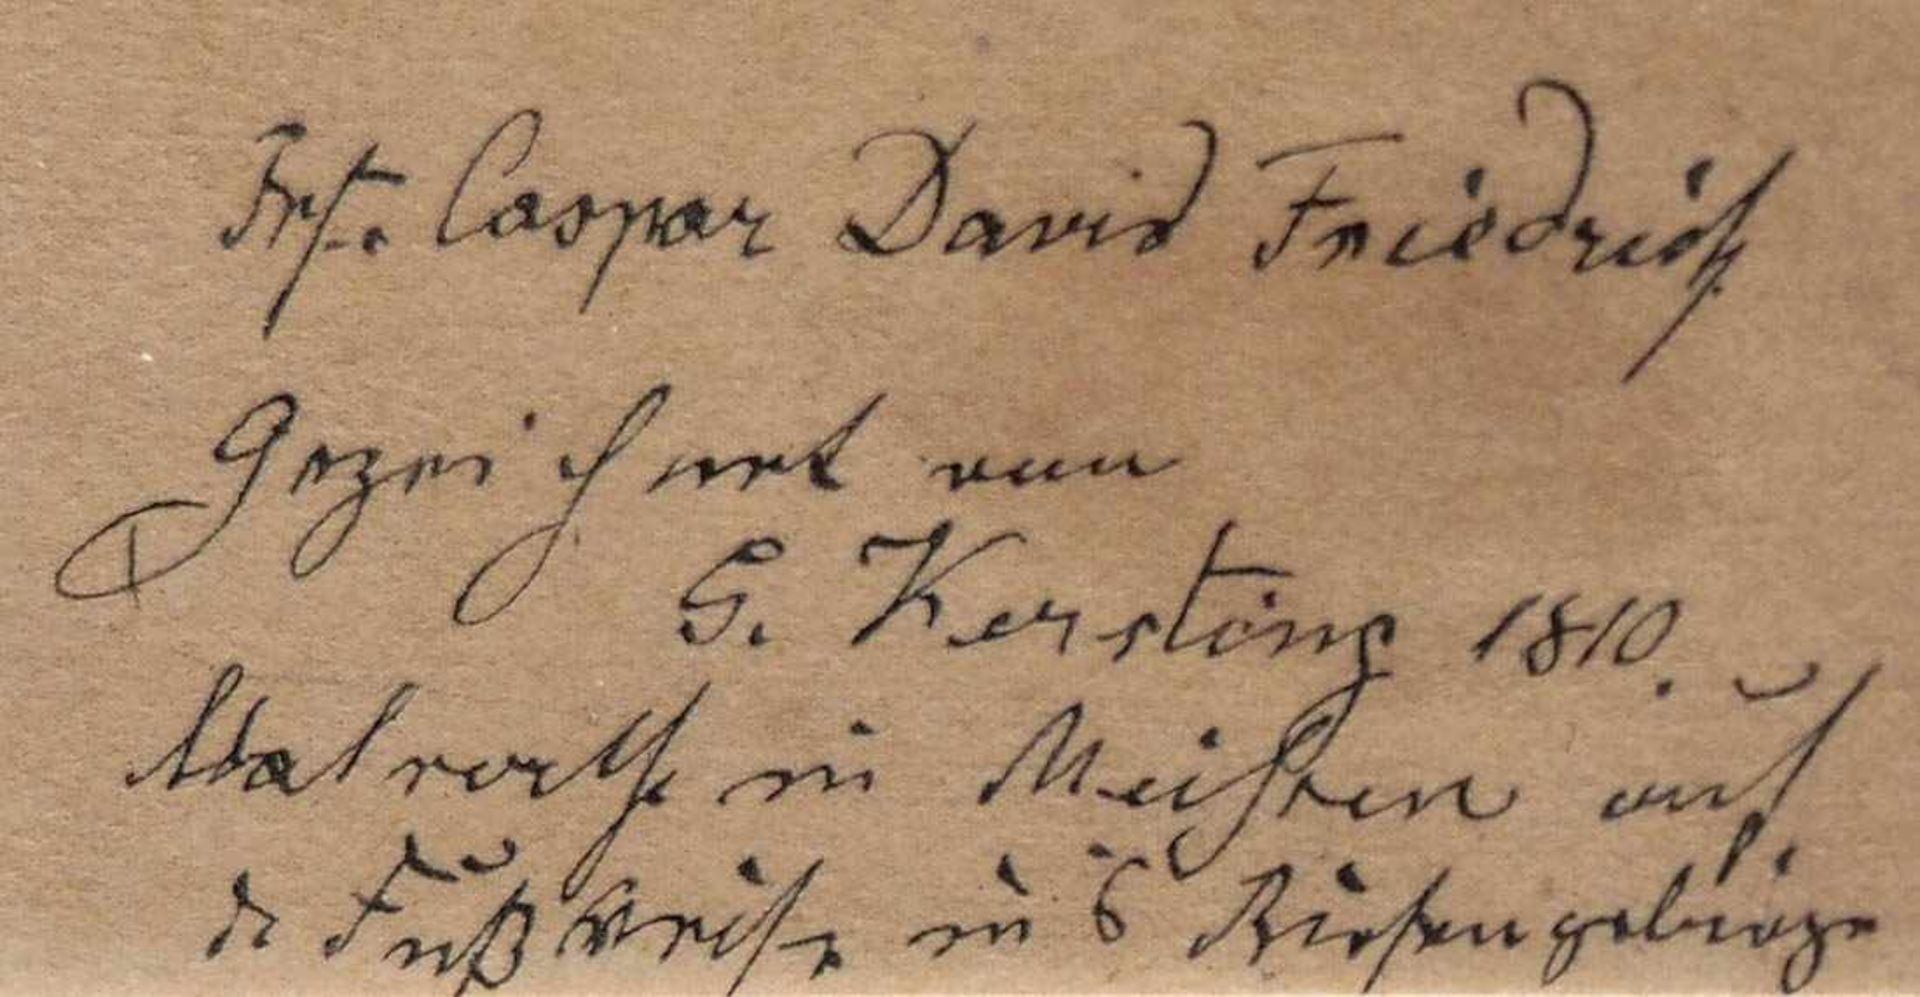 Prf. Caspar David Friedrich
Gezeichnet von
G. Kersting 1810.
in Meißen auf
d Fußreise in's Riesengebirge